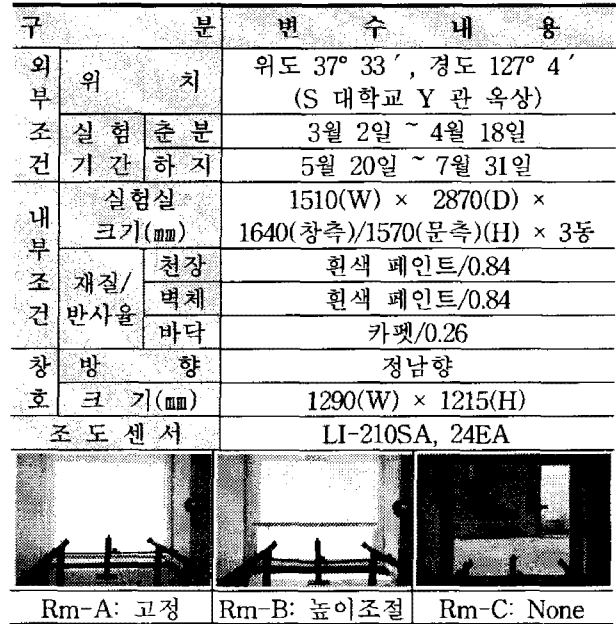 구 분 변 수 내 용
외부조건 위 치 위도 37° 33′, 경도 127° 4′
(S 대학교 Y 관 옥상)
실 험 기 간 춘 분 3월 2일 ~ 4월 18일
하 지 5월 20일 ~ 7월 31일
내부조건 실험실 크기(㎜) 1510(W) × 2870(D) ×
1640(창측)/1570(문측)(H) × 3동
재질/반사율 천장 흰색 페인트/0.84
벽체 흰색 페인트/0.84
바닥 카펫/0.26
창호 방 향 정남향
크 기(㎜) 1290(W) × 1215(H)
조 도 센 서 LI-210SA, 24EA
Rm-A: 고정 Rm-B: 높이조절 Rm-C: None